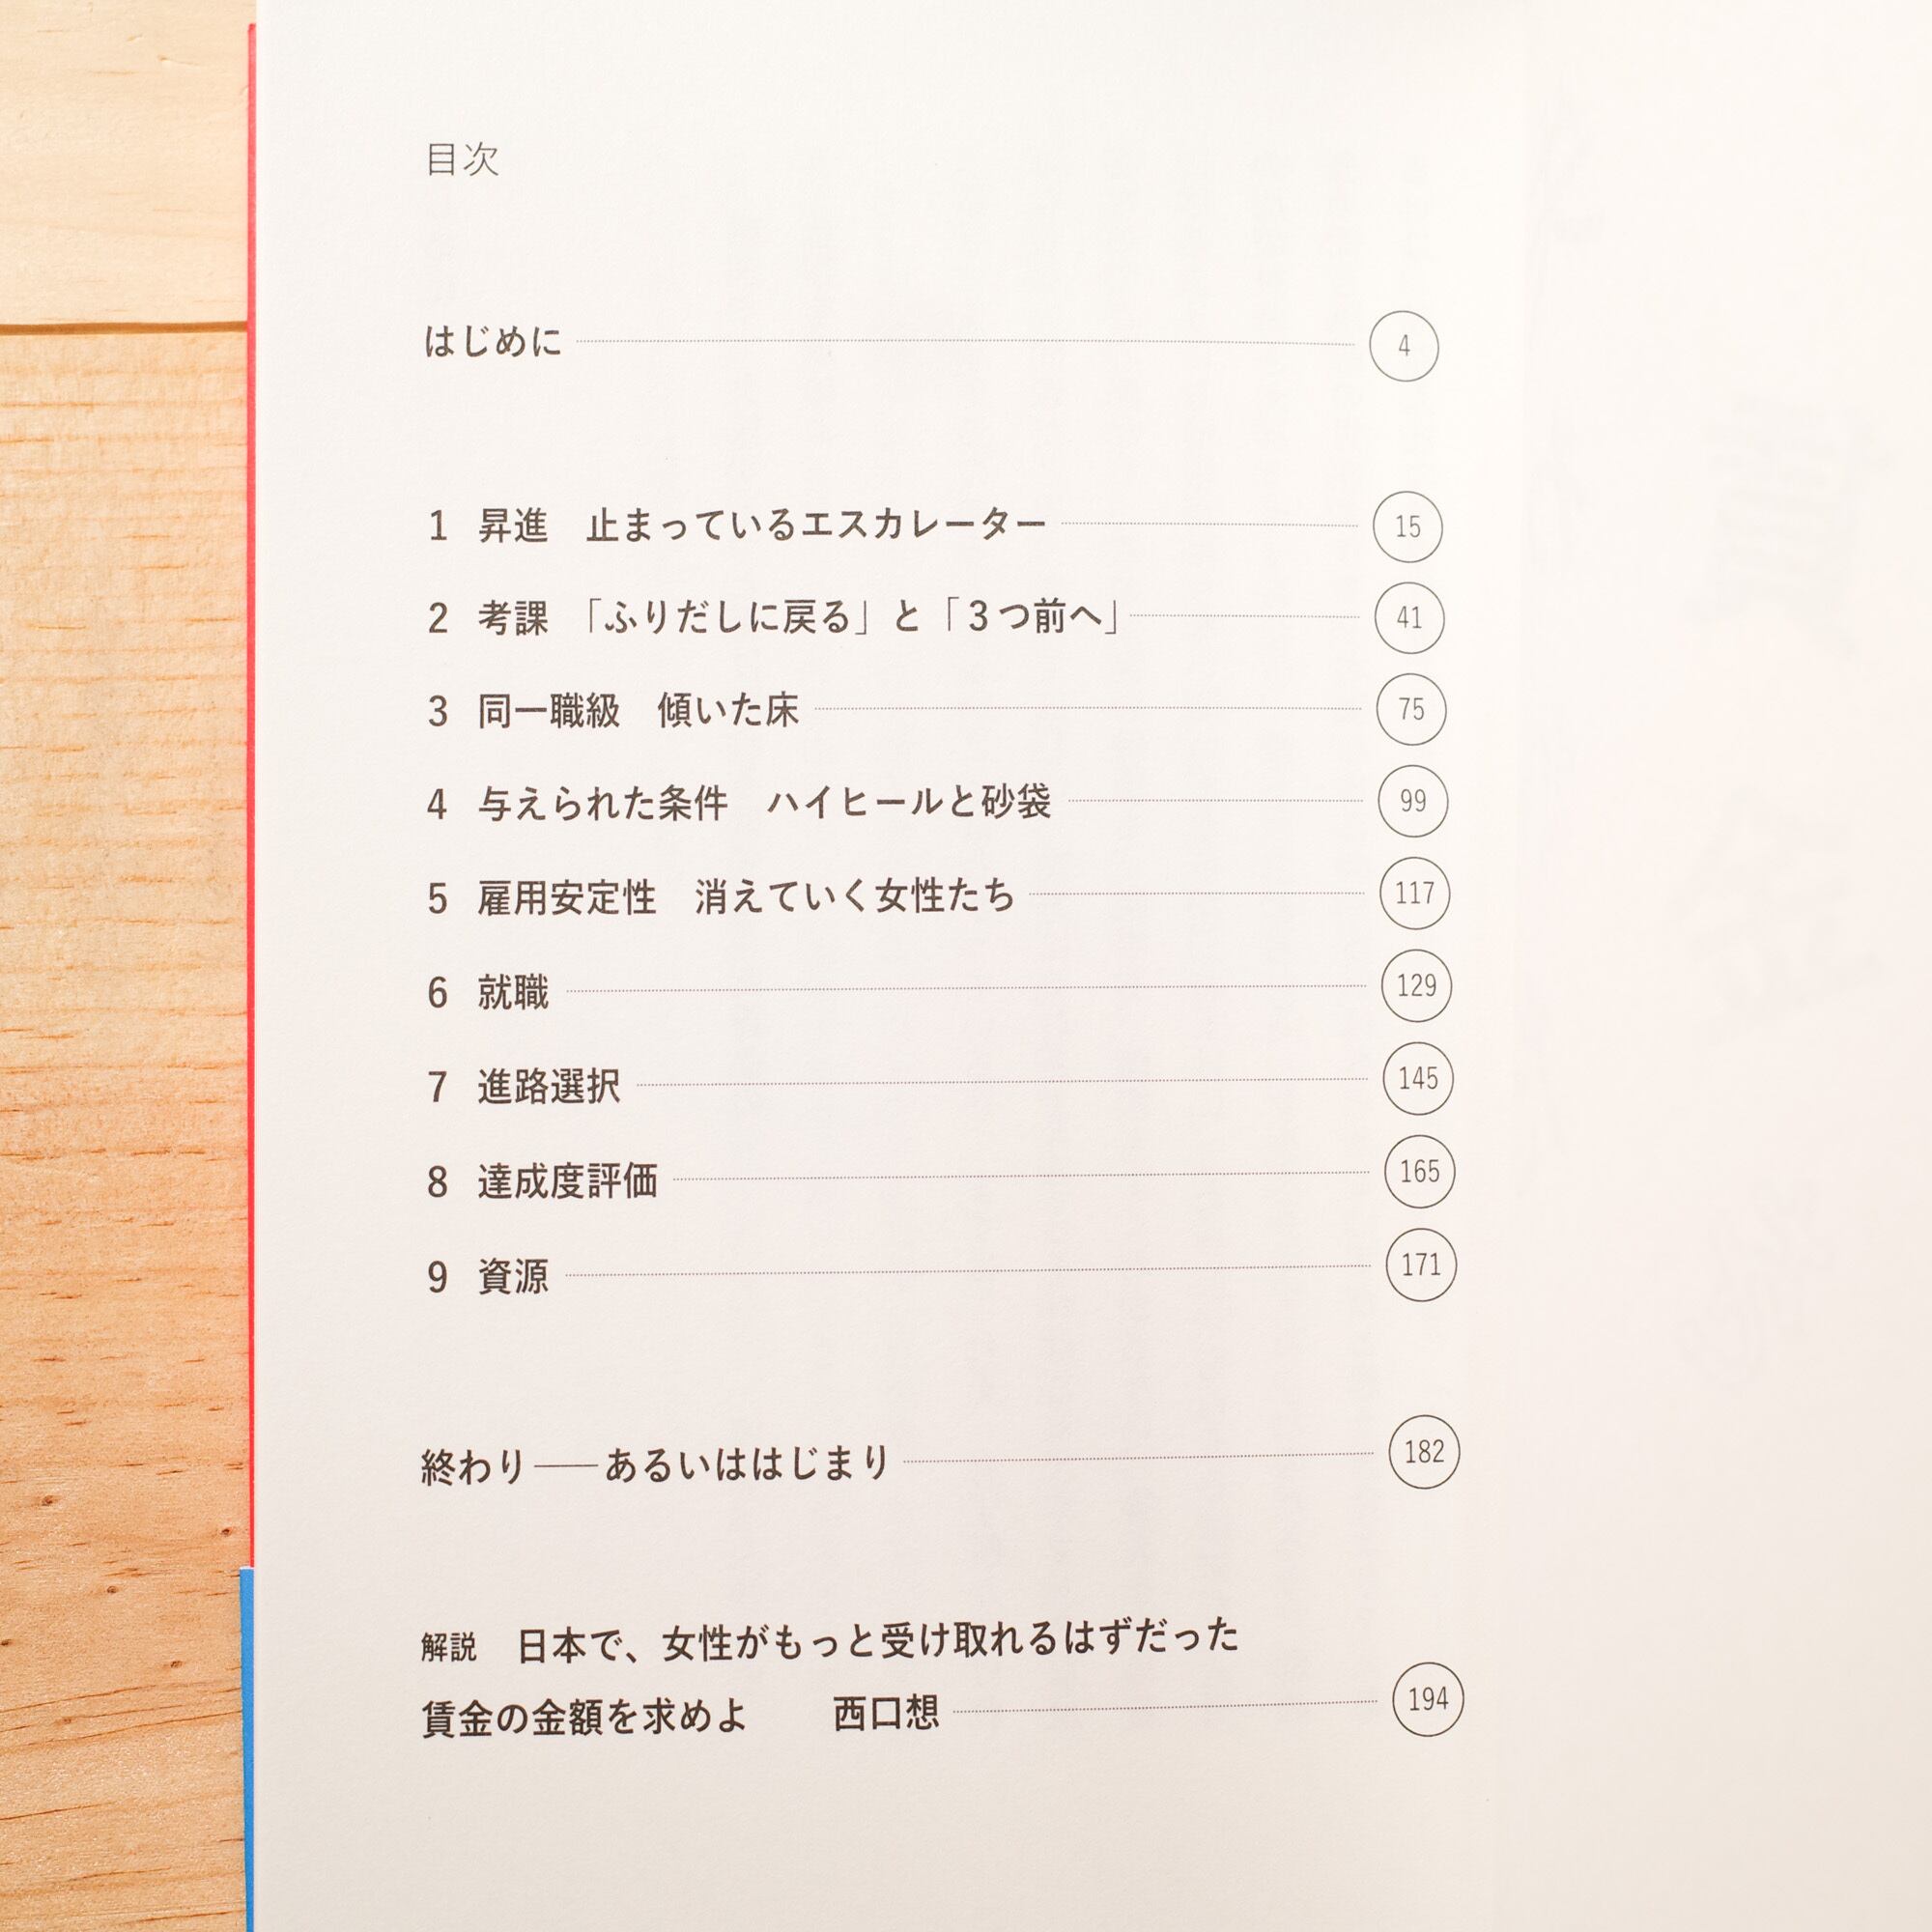 目次
はじめに 4
1 昇進 止まっているエスカレーター 15
2 考課 「ふりだしに戻る」と「3つ前へ」 41
3 同一職級 傾いた床 75
4 与えられた条件 ハイヒールと砂袋 99
5 雇用安定性 消えていく女性たち 117
6 就職 129
7 進路選択 145
8 達成度評価 165
9 資源 171
終わり——あるいははじまり 182
解説 日本で、女性がもっと受け取れるはずだった
賃金の金額を求めよ 西口想 194